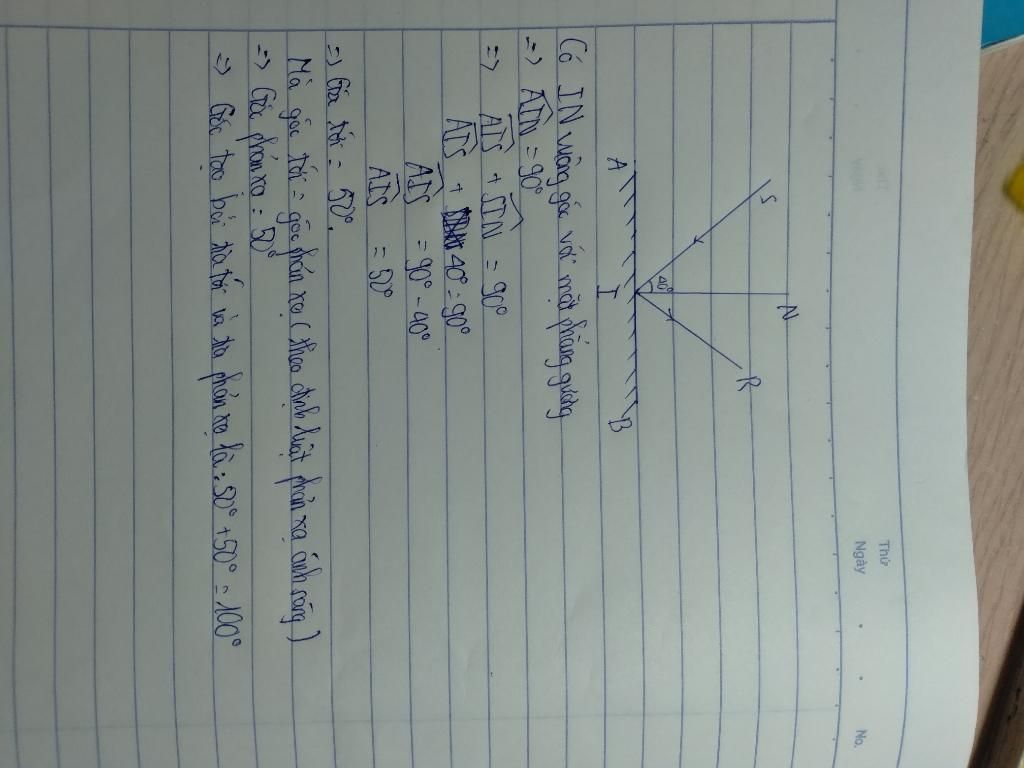 Thứ
Ngày
No.
S
N
R
40°
A
I
B
Có IN vuông góc với mặt phẳng gương
=> AIN = 90°
=> AIS + SIN = 90°
AIS + 40° = 90°
AIS = 90° - 40°
AIS = 50°
=> Góc tới = 50°.
Mà góc tới = góc phản xạ (theo định luật phản xạ ánh sáng)
=> Góc phản xạ = 50°
=> Góc tạo bởi tia tới và tia phản xạ là: 50° + 50° = 100°